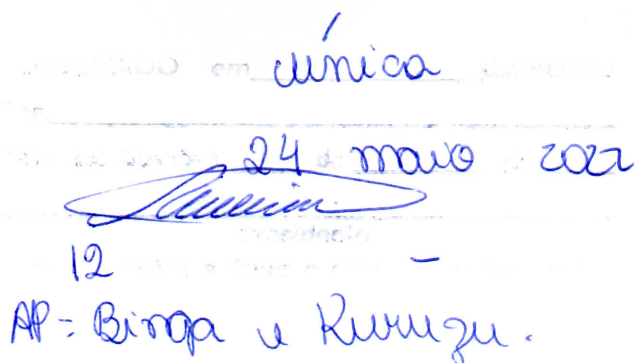 clínica
24 maio 2022
12 -
AP = Binga e Kuruzu.